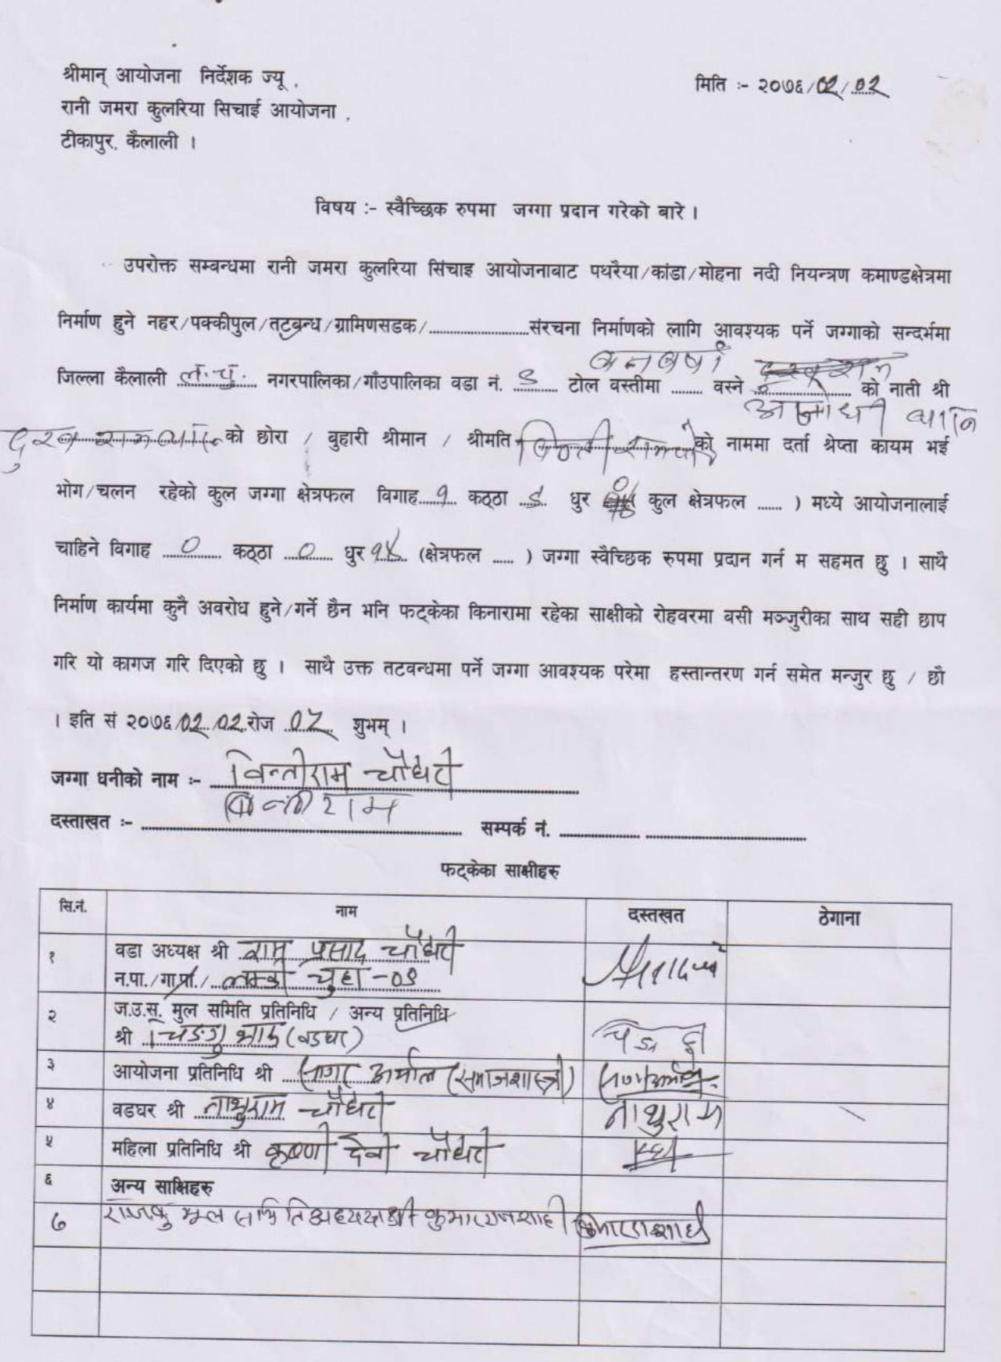 श्रीमान् आयोजना निर्देशक ज्यू .
मिति :- २०७६/०२/०२
रानी जमरा कुलरिया सिचाई आयोजना .
टीकापुर, कैलाली ।
विषय :- स्वैच्छिक रुपमा जग्गा प्रदान गरेको बारे ।
उपरोक्त सम्बन्धमा रानी जमरा कुलरिया सिंचाइ आयोजनाबाट पथरैया/कांडा/मोहना नदी नियन्त्रण कमाण्डक्षेत्रमा
निर्माण हुने नहर/पक्कीपुल/तटबन्ध/ग्रामिणसडक/.....................संरचना निर्माणको लागि आवश्यक पर्ने जग्गाको सन्दर्भमा
जिल्ला कैलाली ल.चु. नगरपालिका/गाँउपालिका वडा नं. ९ टोल वस्तीमा ....... वस्ने को नाती श्री
को छोरा / बुहारी श्रीमान / श्रीमति को नाममा दर्ता श्रेप्ता कायम भई
भोग/चलन रहेको कुल जग्गा क्षेत्रफल विगाह १ कठ्ठा धुर कुल क्षेत्रफल ...... ) मध्ये आयोजनालाई
चाहिने विगाह ० कठ्ठा ० धुर १५ (क्षेत्रफल ..... ) जग्गा स्वैच्छिक रुपमा प्रदान गर्न म सहमत छु । साथै
निर्माण कार्यमा कुनै अवरोध हुने/गर्ने छैन भनि फट्केका किनारामा रहेका साक्षीको रोहवरमा बसी मञ्जुरीका साथ सही छाप
गरि यो कागज गरि दिएको छु । साथै उक्त तटवन्धमा पर्ने जग्गा आवश्यक परेमा हस्तान्तरण गर्न समेत मन्जुर छु / छौ
। इति सं २०७६/०२/०२ रोज ०५ शुभम् ।
जग्गा धनीको नाम :- विन्तीराम चौधरी
दस्ताखत :- विन्तीराम सम्पर्क नं. ...............................
फट्केका साक्षीहरु
सि.नं. नाम दस्तखत ठेगाना
१ वडा अध्यक्ष श्री राम प्रसाद चौधरी
न.पा./गा.पा./ लम्की चुहा -०९
२ ज.उ.सं. मुल समिति प्रतिनिधि / अन्य प्रतिनिधि
श्री (वडघर)
३ आयोजना प्रतिनिधि श्री सागर अर्याल (समाजशास्त्री)
४ वडघर श्री नाथुराम चौधरी नाथुराम
५ महिला प्रतिनिधि श्री कृष्णी देवी चौधरी
६ अन्य साक्षिहरु
७